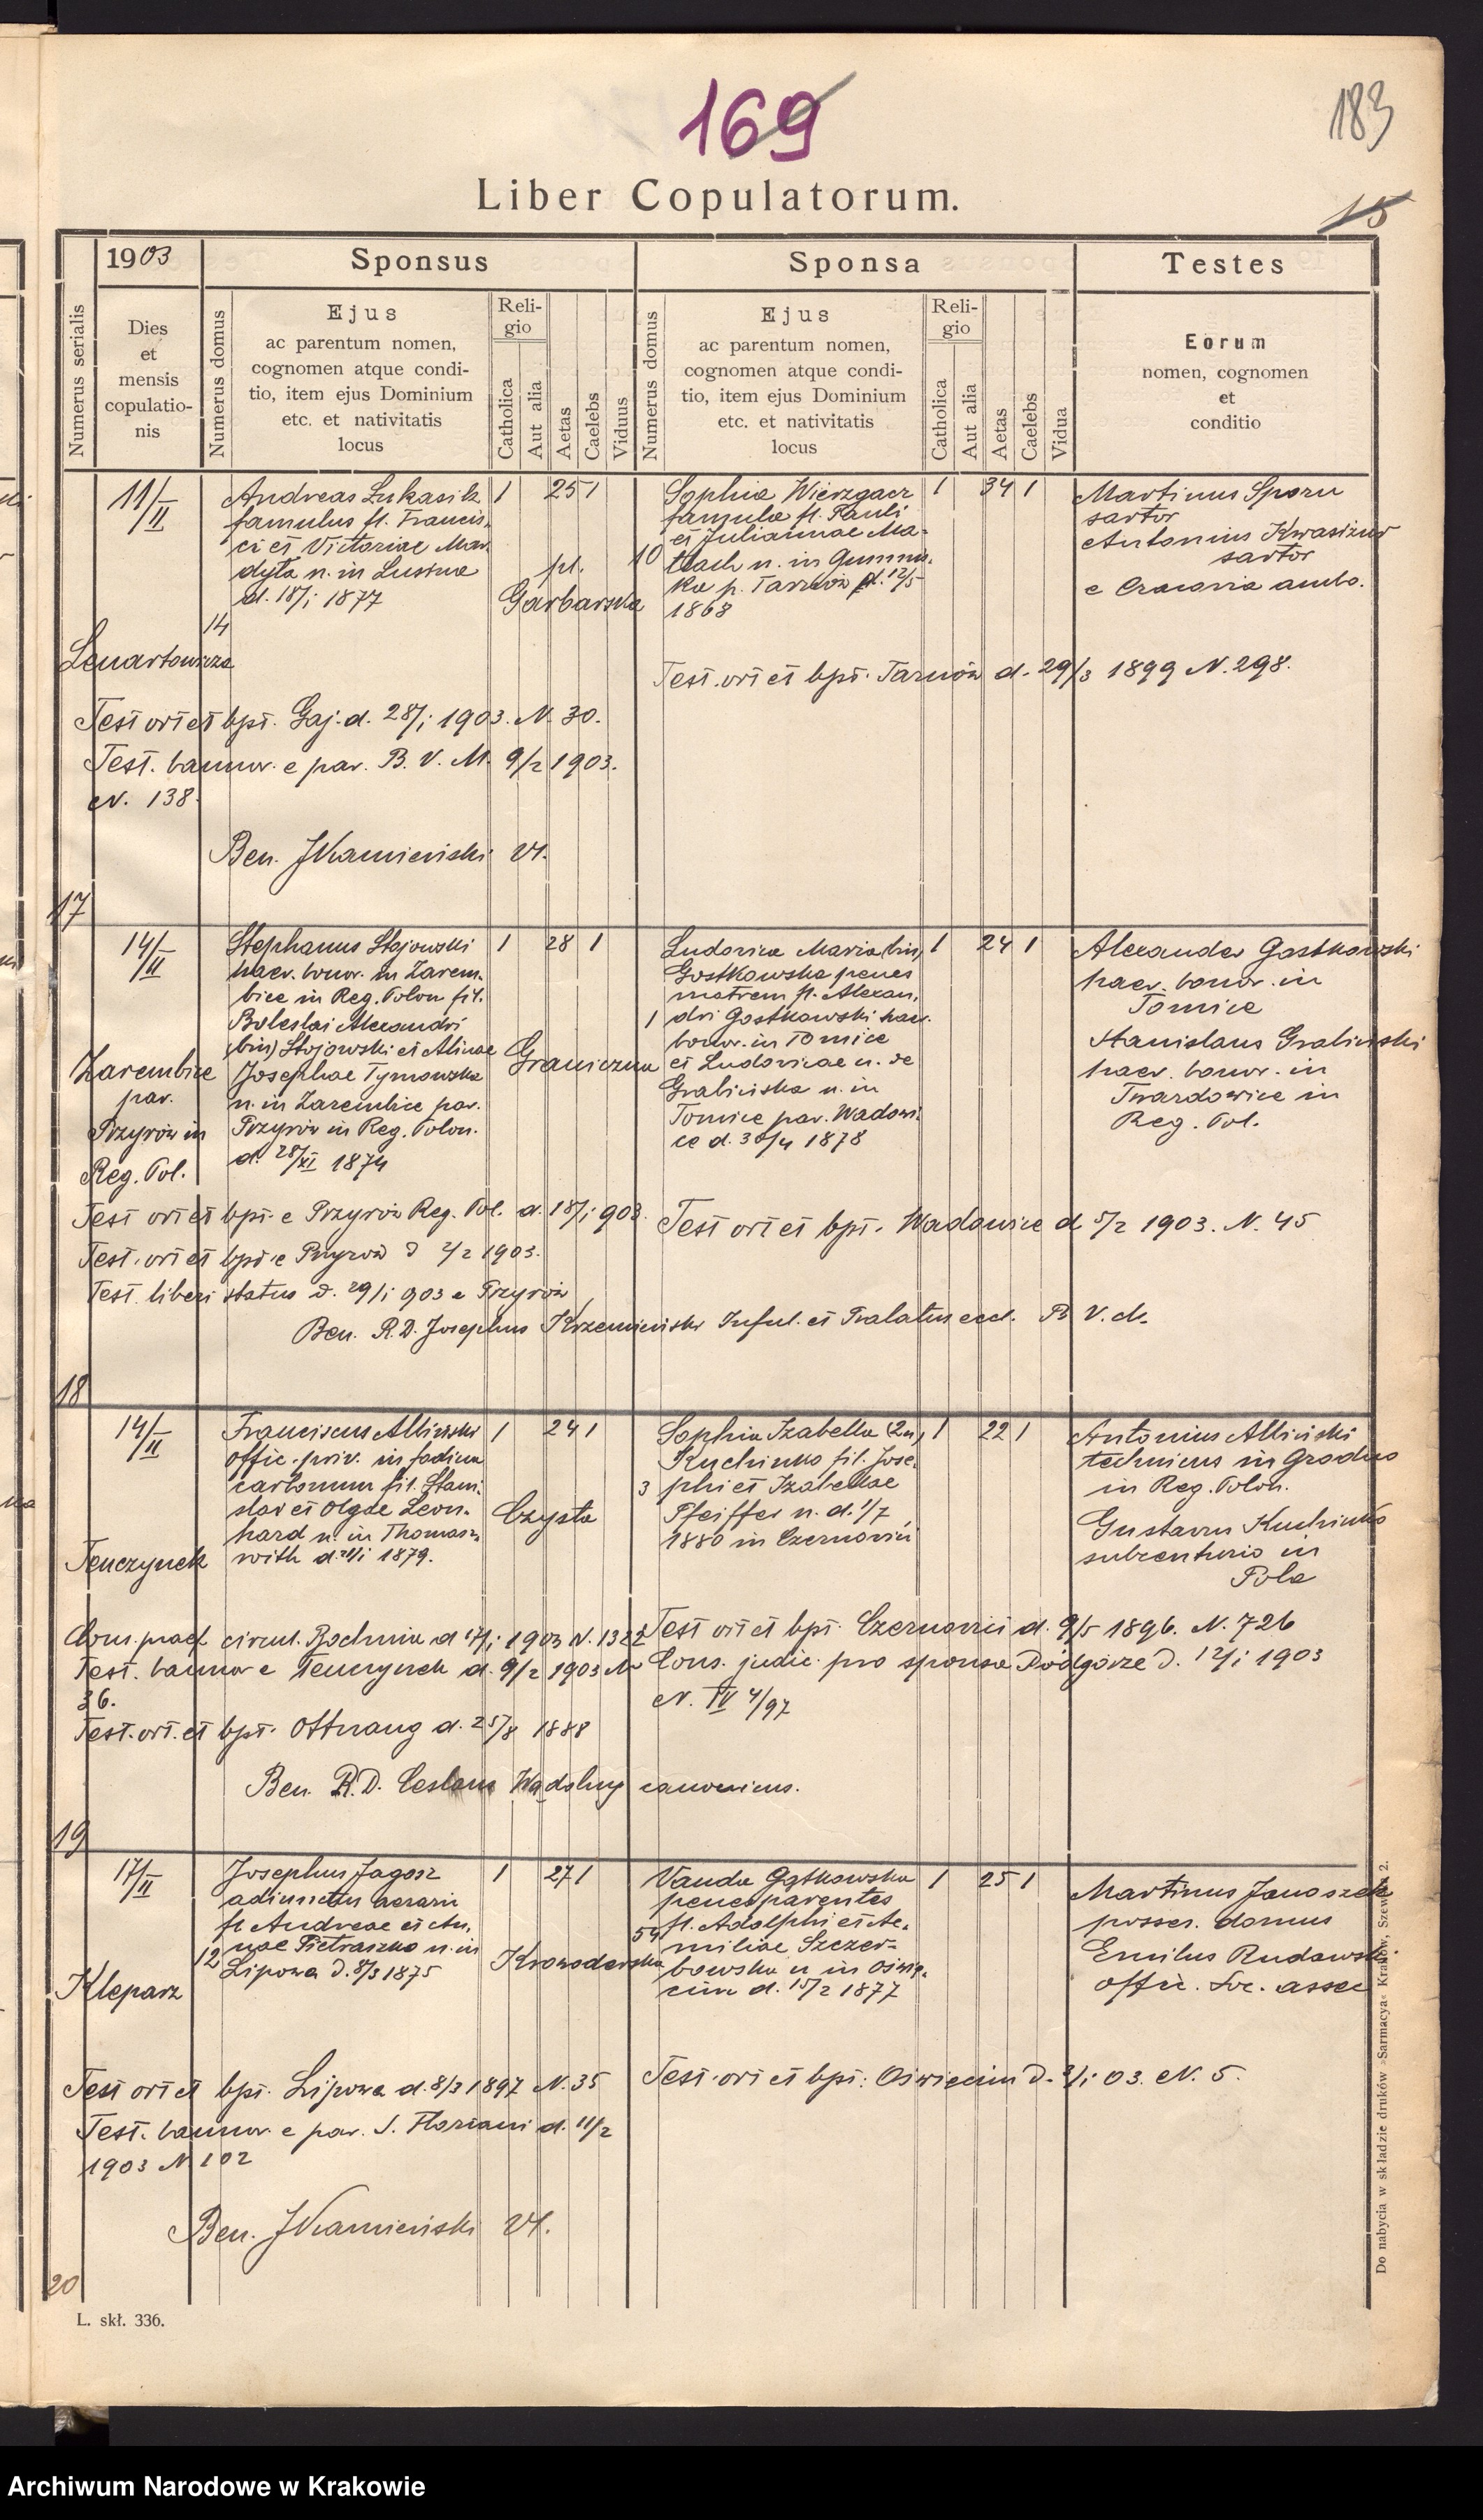 169
183
Liber Copulatorum.
15
1903
Sponsus
Sponsa
Testes
Numerus serialis
Dies
et
mensis
copulatio-
nis
Numerus domus
Ejus
ac parentum nomen,
cognomen atque condi-
tio, item ejus Dominium
etc. et nativitatis
locus
Reli-
gio
Catholica
Aut alia
Aetas
Caelebs
Viduus
Numerus domus
Ejus
ac parentum nomen,
cognomen atque condi-
tio, item ejus Dominium
etc. et nativitatis
locus
Reli-
gio
Catholica
Aut alia
Aetas
Caelebs
Vidua
Eorum
nomen, cognomen
et
conditio
11/II
Andreas Łukasik
famulus fl. Francis.
ci et Victoriae Man
dyla n. in
d. 18/i 1877
1 25 1
pl.
Garbarska
14
10
Sophia Wierzgacz
famula fl. Pauli
et Juliannae Ma-
tlach n. in Gumnis.
ka p. Tarnów d. 12/5
1868
1 34 1
Martinus
sartor
Antonius
sartor
e Cracovia ambo.
Lenartowicza
Test. ort et bpt. Tarnów d. 29/3 1899 N. 298.
Test ort et bpt. Gaj. d. 28/i 1903. N. 30.
Test. bannor. e par. B. V. M. 9/2 1903.
N. 138.
Ben. JKamieński
17
14/II
Stephanus Stojowski
haer. bonor. in Zarem.
bice in Reg. Polon fil.
Boleslai Alexandri
(bin) Stojowski et Alinae
Josephae Tymowska
n. in Zarembice par.
Przyrów in Reg. Polon.
d. 28/XI 1874
1 28 1
Zarembice
par.
Przyrów in
Reg. Pol.
Graniczna
1
Ludovica Maria (bin)
Gostkowska penes
matrem fl. Alexan.
dri Gostkowski haer.
bonor. in Tomice
et Ludovicae n. de
Grabińska n. in
Tomice par. Wadowi.
ce d. 30/4 1878
1 24 1
Alexander Gostkowski
haer. bonor. in
Tomice
Stanislaus Grabiński
haer. bonor. in
Twardowice in
Reg. Pol.
Test ort et bpt. e Przyrów Reg. Pol. d. 18/i 903.
Test ort et bpt. Wadowice d 5/2 1903. N. 45
Test. ort et bpt. e Przyrów d 2/2 1903.
Test. liberi status d. 29/i 903 e Przyrów
Ben. R. D. Josephus Krzemieński Inful. et Pralatus eccl. B V. M.
18
14/II
Franciscus Albiński
offic. priv. in fodina
carbonum fil. Stani.
slai et Olgae Leon.
hard n. in Thomas.
roith d. /i 1879.
1 24 1
Tenczynek
Czysta
3
Sophia Izabella (2n)
Kuchinka fil. Jose.
phi et Izabellae
Pfeiffer n. d. 1/7
1880 in Czernovici
1 22 1
Antonius Albiński
technicus in Grodno
in Reg. Polon.
Gustavus Kuchinka
subcenturio in
Pola
Cons. praef. circul. Bochnia d 17/i 1903 N. 1322
Test ort et bpt. Czernovici d. 9/5 1896. N. 726
Test. bannor e Tenczynek d. 9/2 1903 N
36.
Cons. judic. pro sponsa Podgórze d. 12/i 1903
N. IV 4/97
Test. ort. et bpt. Ottnang d. 25/8 1888
Ben. R. D. Ceslaus Wądolny canonicus.
19
17/II
Josephus Jagosz
adiunctus aerarii
fl Andreae et An.
nae Pietraszko n. in
Lipowa d. 8/3 1875
1 27 1
12
Kleparz
Krowoderska
54
Vanda Gątkowska
penes parentes
fl. Adolphi et Ae.
miliae Szczer-
bowska n in Oświę.
cim d. 15/2 1877
1 25 1
Martinus Janoszek
posses. domus
Emilus Rudawski
offic. Soc. assec
Test ort et bpt. Lipowa d. 8/3 1897 N. 35
Test. ort et bpt: Oświęcim d. 2/i 03. N. 5.
Test. bannor. e par. S. Floriani d. 11/2
1903 N 102
Ben. JKamieński
20
L. skł. 336.
Do nabycia w składzie druków »Sarmacya« Kraków, Szewska 2.
Archiwum Narodowe w Krakowie